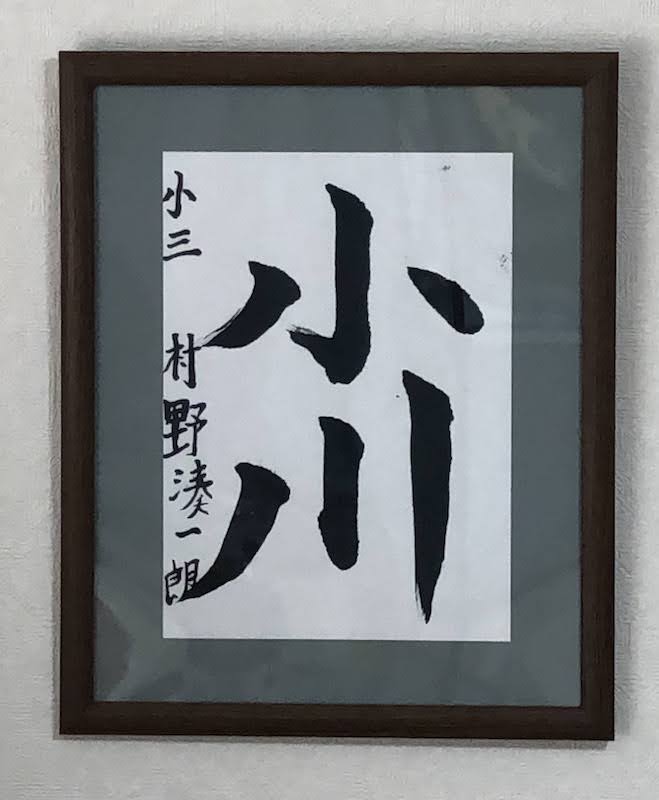 小川
小三 村野湊一朗